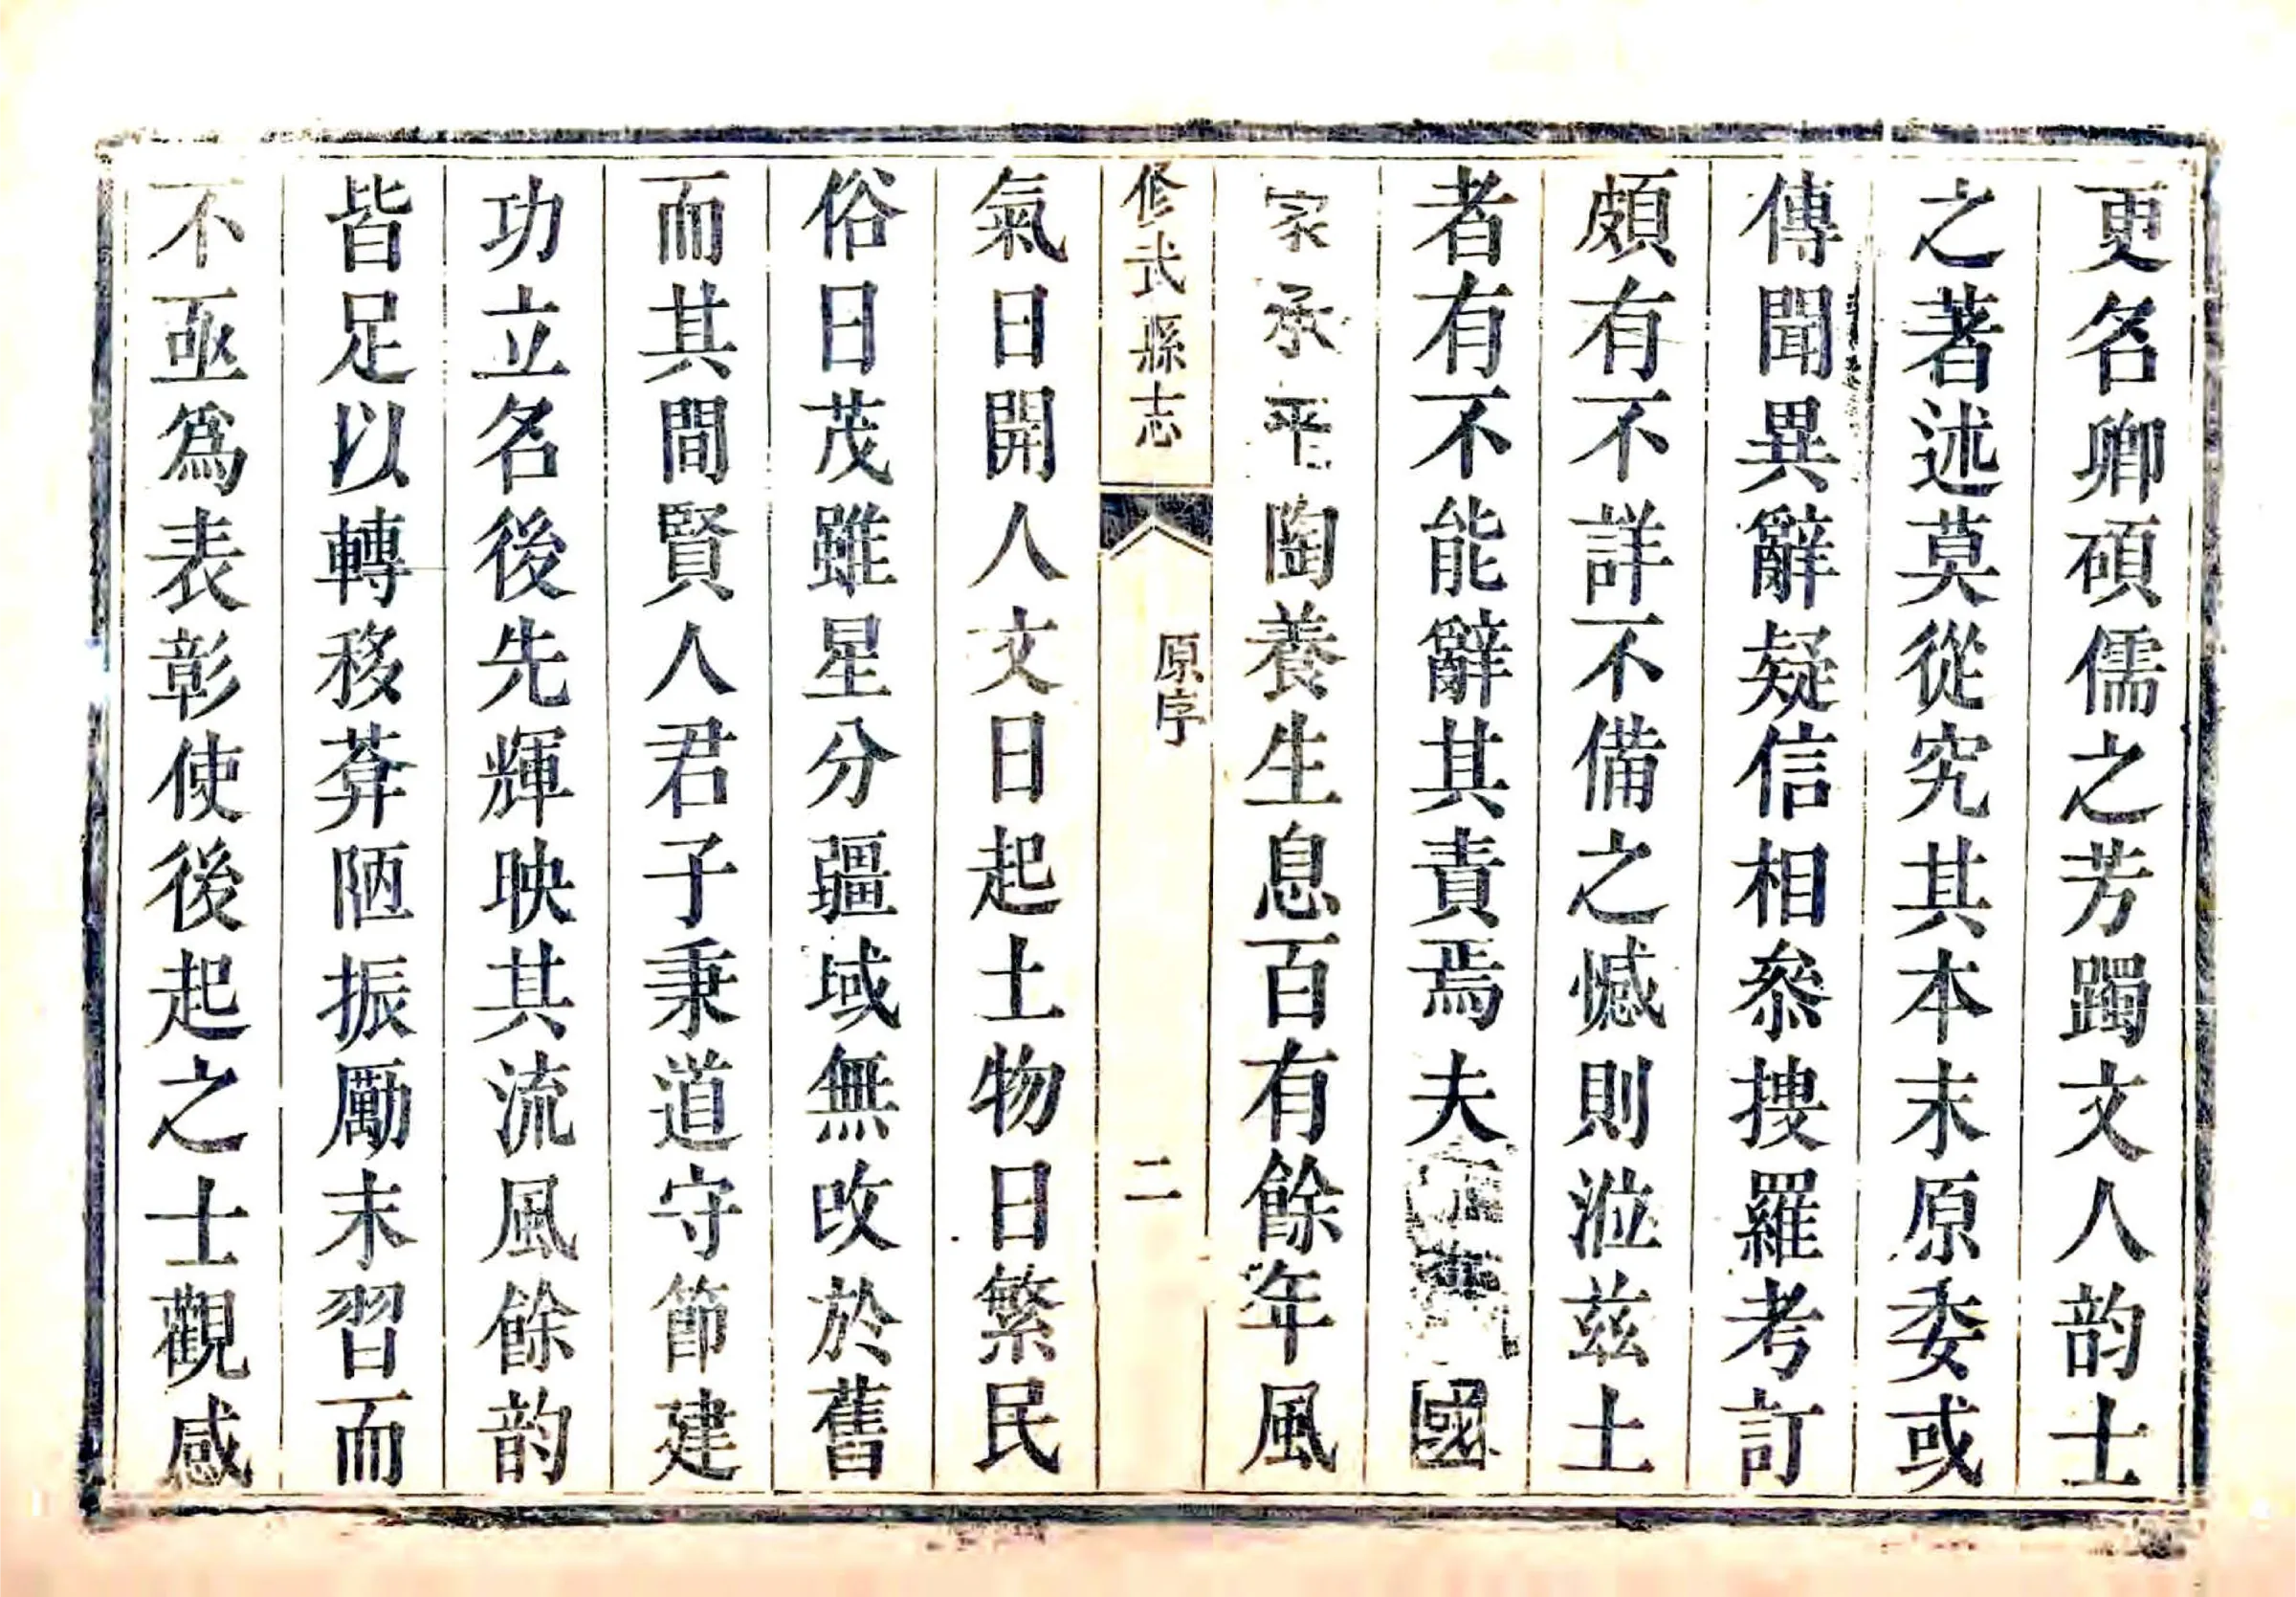 更名卿碩儒之芳躅文人韵士
之著述莫從究其本末原委或
傳聞異辭疑信相叅捜羅考訂
頗有不詳不備之憾則涖兹土
者有不能辭其責焉夫國
家承平陶養生息百有餘年風
修武縣志
原序
二
氣日開人文日起土物日繁民
俗日茂雖星分疆域無改於舊
而其間賢人君子秉道守節建
功立名後先輝映其流風餘韵
皆足以轉移莽陋振勵末習而
不亟爲表彰使後起之士觀感